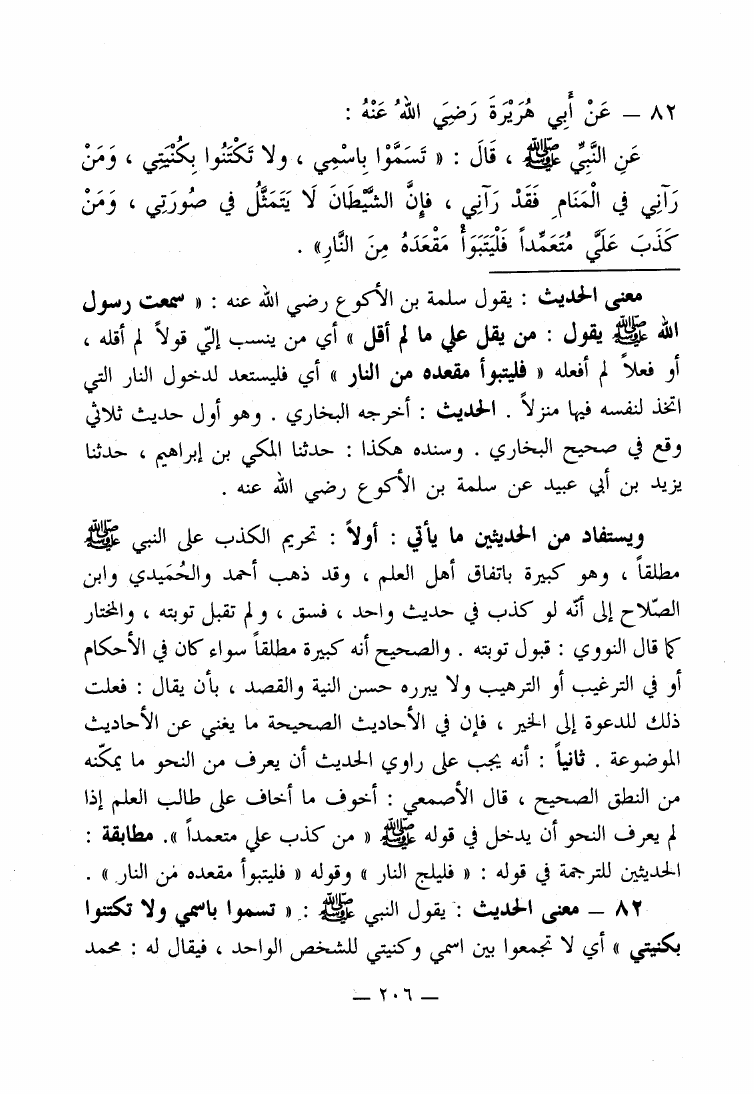 ٨٢ — عَنْ أَبِي هُرَيْرَةَ رَضِيَ اللهُ عَنْهُ :
عَنِ النَّبِيِّ ﷺ ، قَالَ : « تَسَمَّوْا بِاسْمِي ، ولا تَكْتَنُوا بِكُنْيَتِي ، وَمَنْ
رَآنِي في الْمَنَامِ فَقَدْ رَآنِي ، فإِنَّ الشَّيْطَانَ لَا يَتَمَثَّلُ في صُورَتِي ، وَمَنْ
كَذَبَ عَلَيَّ مُتَعَمِّداً فَلْيَتَبَوَأْ مَقْعَدَهُ مِنَ النَّارِ» .
معنى الحديث : يقول سلمة بن الأكوع رضي الله عنه : « سمعت رسول
الله ﷺ يقول : من يقل علي ما لم أقل » أي من ينسب إليّ قولاً لم أقله ،
أو فعلاً لم أفعله « فليتبوأ مقعده من النار » أي فليستعد لدخول النار التي
اتخذ لنفسه فيها منزلاً . الحديث : أخرجه البخاري . وهو أول حديث ثلاثي
وقع في صحيح البخاري . وسنده هكذا : حدثنا المكي بن إبراهيم ، حدثنا
يزيد بن أبي عبيد عن سلمة بن الأكوع رضي الله عنه .
ويستفاد من الحديثين ما يأتي : أولاً : تحريم الكذب على النبي ﷺ
مطلقاً ، وهو كبيرة باتفاق أهل العلم ، وقد ذهب أحمد والحُمَيدي وابن
الصّلاح إلى أنّه لو كذب في حديث واحد ، فسق ، ولم تقبل توبته ، والمختار
كما قال النووي : قبول توبته . والصحيح أنه كبيرة مطلقاً سواء كان في الأحكام
أو في الترغيب أو الترهيب ولا يبرره حسن النية والقصد ، بأن يقال : فعلت
ذلك للدعوة إلى الخير ، فإن في الأحاديث الصحيحة ما يغني عن الأحاديث
الموضوعة . ثانياً : أنه يجب على راوي الحديث أن يعرف من النحو ما يمكّنه
من النطق الصحيح ، قال الأصمعي : أخوف ما أخاف على طالب العلم إذا
لم يعرف النحو أن يدخل في قوله ﷺ « من كذب علي متعمداً ». مطابقة :
الحديثين للترجمة في قوله : « فليلج النار » وقوله « فليتبوأ مقعده من النار » .
٨٢ — معنى الحديث : يقول النبي ﷺ : « تسموا باسمي ولا تكتنوا
بكنيتي » أي لا تجمعوا بين اسمي وكنيتي للشخص الواحد ، فيقال له : محمد
— ٢٠٦ —